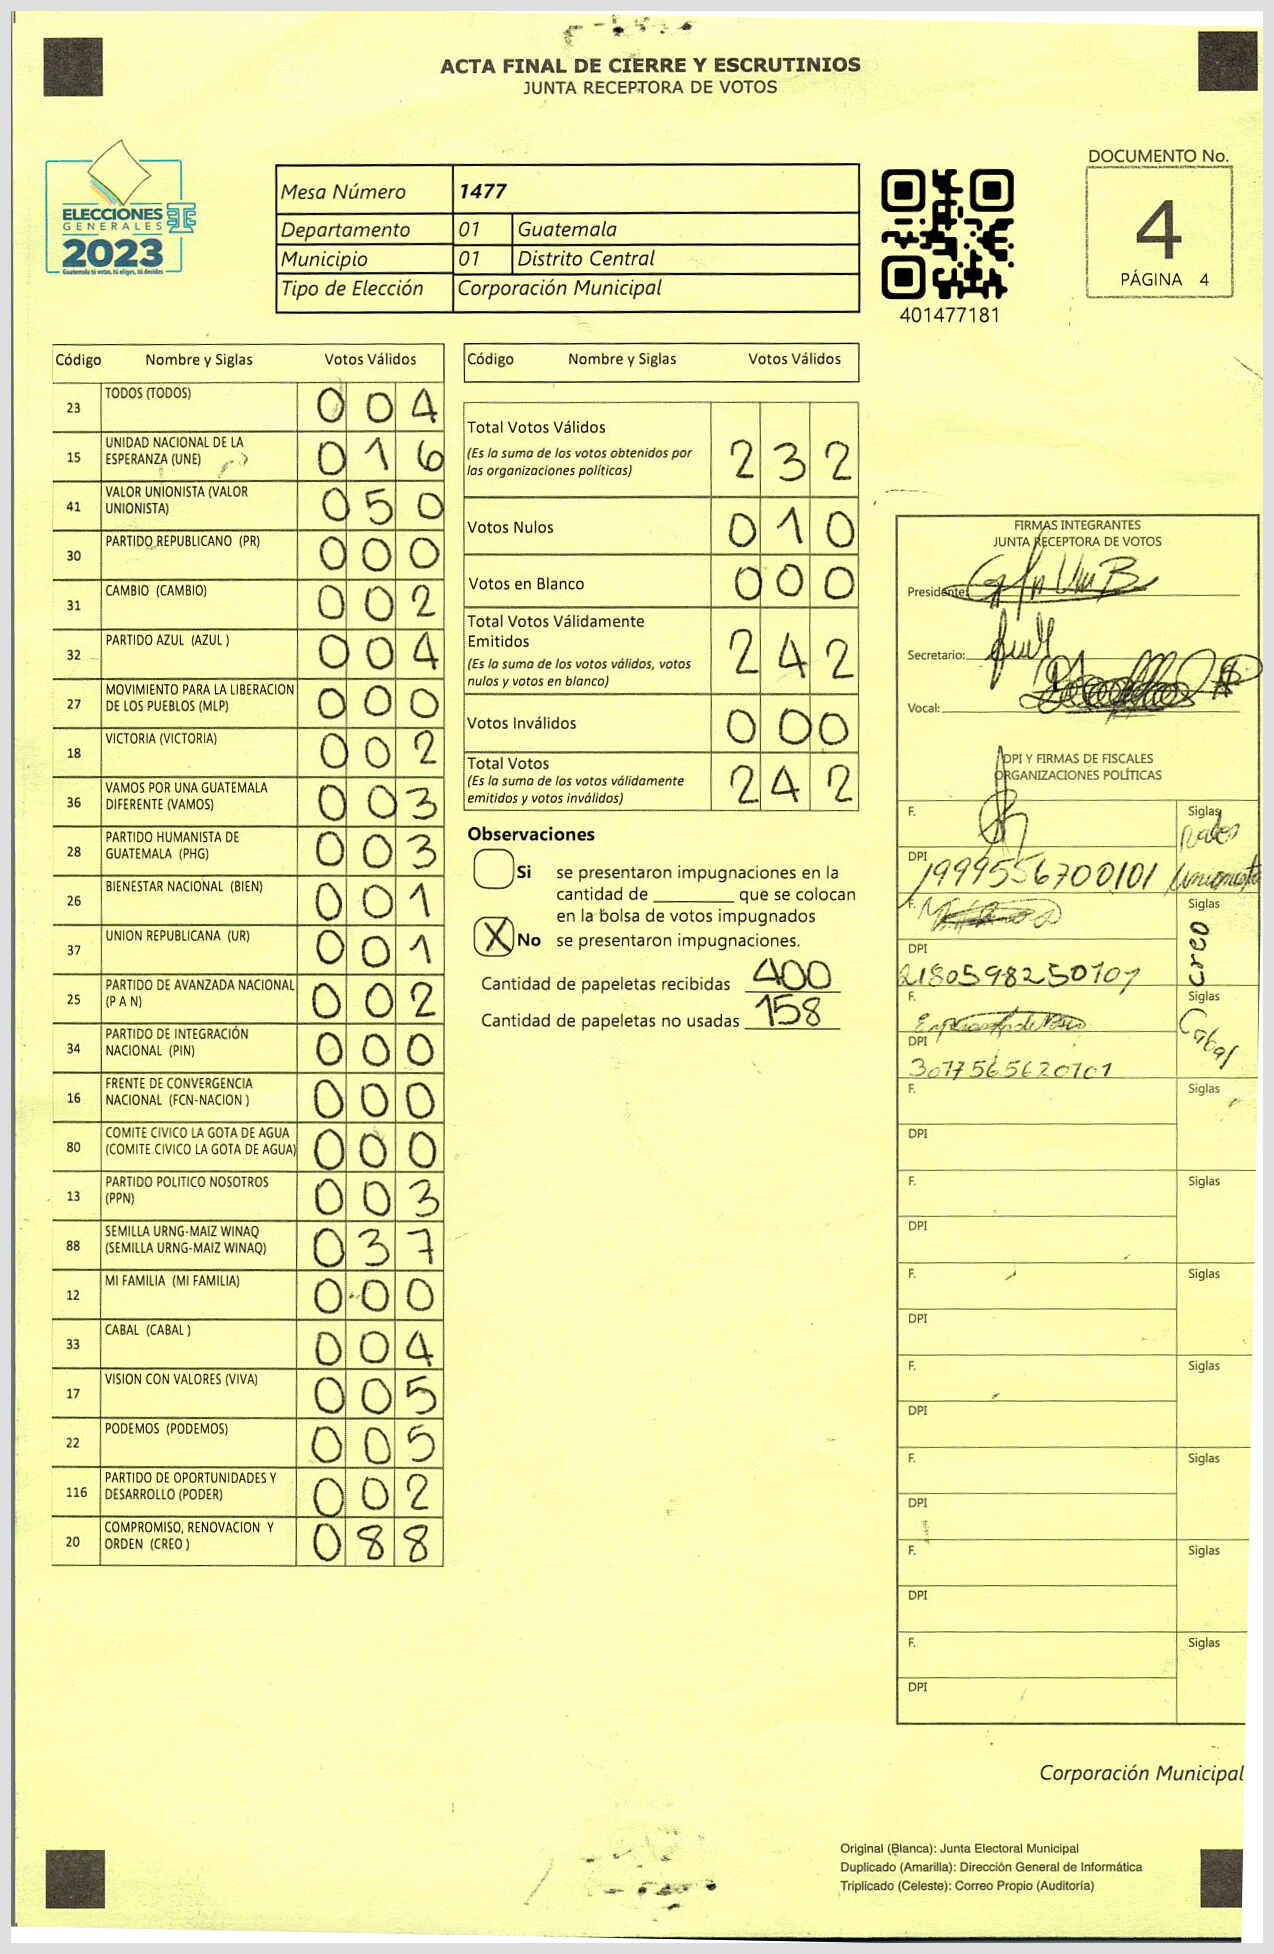 ACTA FINAL DE CIERRE Y ESCRUTINIOS
JUNTA RECEPTORA DE VOTOS
ELECCIONES
GENERALES
2023
Guatemala tú votas, tú eliges, tú decides
Mesa Número 1477
Departamento 01 Guatemala
Municipio 01 Distrito Central
Tipo de Elección Corporación Municipal
401477181
DOCUMENTO No.
4
PÁGINA 4
Código Nombre y Siglas Votos Válidos
23 TODOS (TODOS) 0 0 4
15 UNIDAD NACIONAL DE LA
ESPERANZA (UNE) 0 1 6
41 VALOR UNIONISTA (VALOR
UNIONISTA) 0 5 0
30 PARTIDO REPUBLICANO (PR) 0 0 0
31 CAMBIO (CAMBIO) 0 0 2
32 PARTIDO AZUL (AZUL ) 0 0 4
27 MOVIMIENTO PARA LA LIBERACION
DE LOS PUEBLOS (MLP) 0 0 0
18 VICTORIA (VICTORIA) 0 0 2
36 VAMOS POR UNA GUATEMALA
DIFERENTE (VAMOS) 0 0 3
28 PARTIDO HUMANISTA DE
GUATEMALA (PHG) 0 0 3
26 BIENESTAR NACIONAL (BIEN) 0 0 1
37 UNION REPUBLICANA (UR) 0 0 1
25 PARTIDO DE AVANZADA NACIONAL
(P A N) 0 0 2
34 PARTIDO DE INTEGRACIÓN
NACIONAL (PIN) 0 0 0
16 FRENTE DE CONVERGENCIA
NACIONAL (FCN-NACION ) 0 0 0
80 COMITE CIVICO LA GOTA DE AGUA
(COMITE CIVICO LA GOTA DE AGUA) 0 0 0
13 PARTIDO POLITICO NOSOTROS
(PPN) 0 0 3
88 SEMILLA URNG-MAIZ WINAQ
(SEMILLA URNG-MAIZ WINAQ) 0 3 7
12 MI FAMILIA (MI FAMILIA) 0 0 0
33 CABAL (CABAL ) 0 0 4
17 VISION CON VALORES (VIVA) 0 0 5
22 PODEMOS (PODEMOS) 0 0 5
116 PARTIDO DE OPORTUNIDADES Y
DESARROLLO (PODER) 0 0 2
20 COMPROMISO, RENOVACION Y
ORDEN (CREO ) 0 8 8
Código Nombre y Siglas Votos Válidos
Total Votos Válidos
(Es la suma de los votos obtenidos por
las organizaciones políticas) 2 3 2
Votos Nulos 0 1 0
Votos en Blanco 0 0 0
Total Votos Válidamente
Emitidos
(Es la suma de los votos válidos, votos
nulos y votos en blanco) 2 4 2
Votos Inválidos 0 0 0
Total Votos
(Es la suma de los votos válidamente
emitidos y votos inválidos) 2 4 2
Observaciones
Si se presentaron impugnaciones en la
cantidad de ________ que se colocan
en la bolsa de votos impugnados
X No se presentaron impugnaciones.
Cantidad de papeletas recibidas 400
Cantidad de papeletas no usadas 158
FIRMAS INTEGRANTES
JUNTA RECEPTORA DE VOTOS
Presidente:
Secretario:
Vocal:
DPI Y FIRMAS DE FISCALES
ORGANIZACIONES POLÍTICAS
F. Siglas
DPI 1999556700101
F. Siglas
creo
DPI
2180598250101
F. Siglas
Cabal
DPI
3077565620101
F. Siglas
DPI
F. Siglas
DPI
F. Siglas
DPI
F. Siglas
DPI
F. Siglas
DPI
F. Siglas
DPI
F. Siglas
DPI
Corporación Municipal
Original (Blanca): Junta Electoral Municipal
Duplicado (Amarilla): Dirección General de Informática
Triplicado (Celeste): Correo Propio (Auditoría)